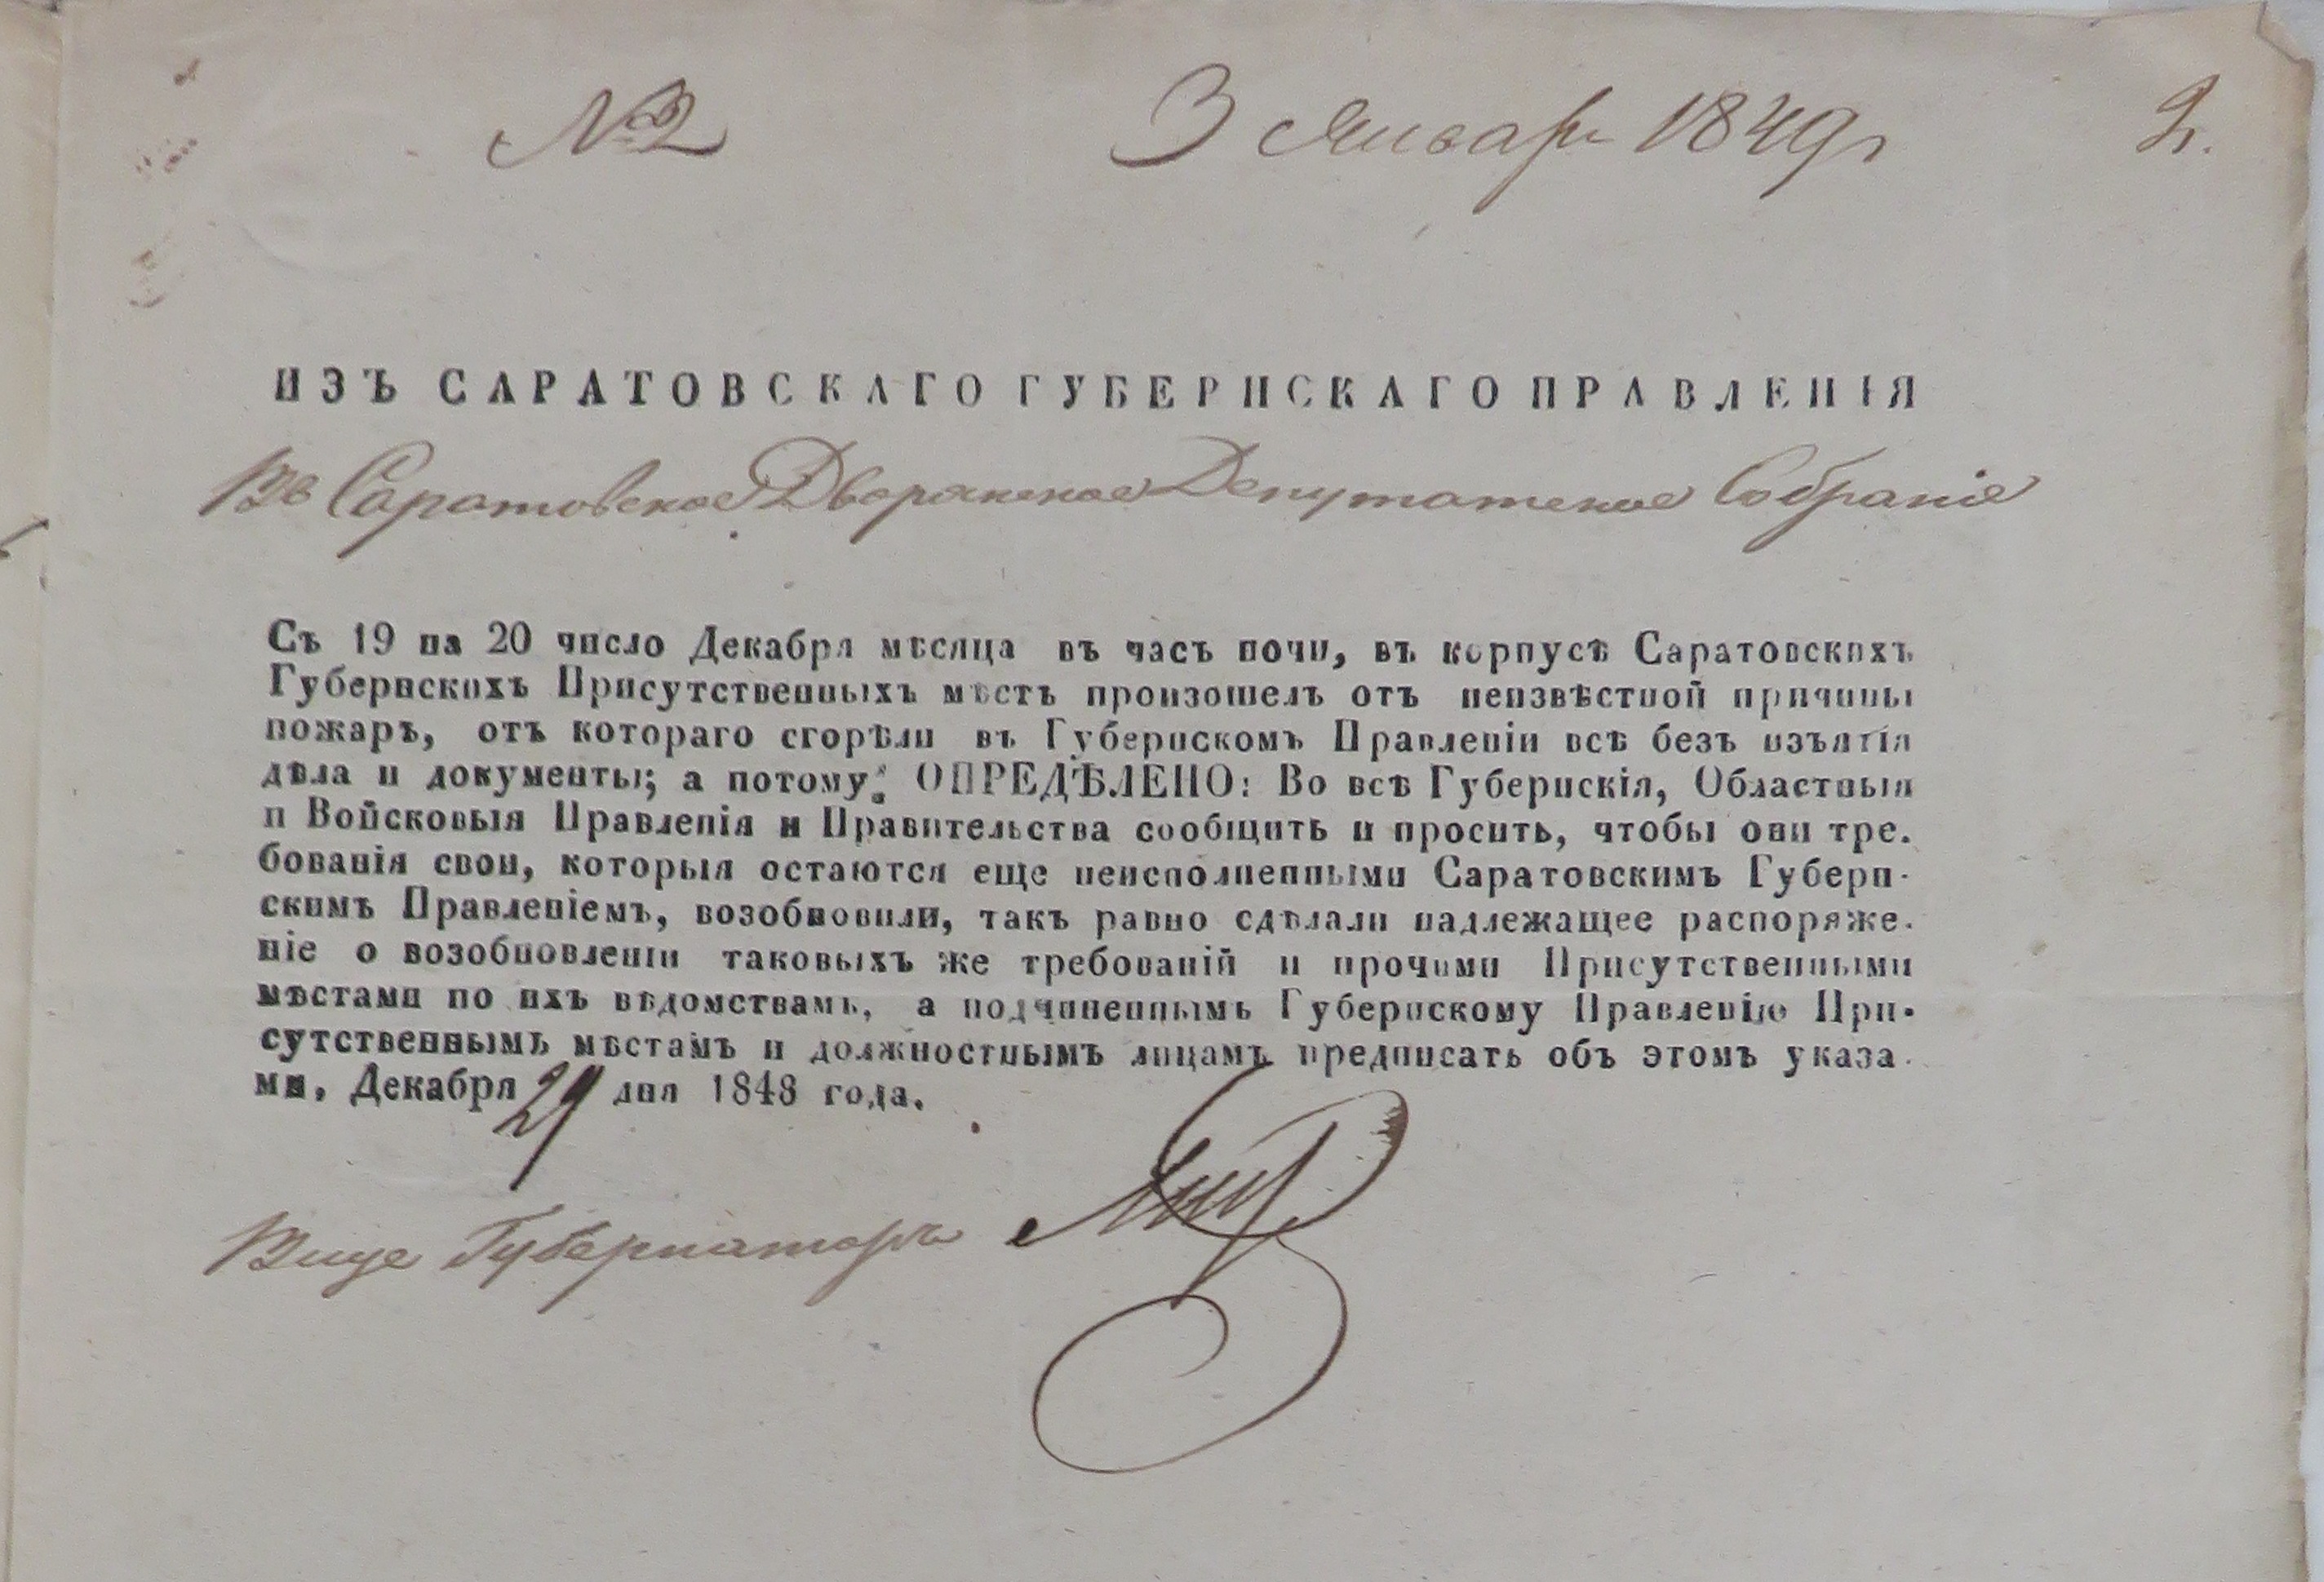 № 2 3 Январ 1849 г 2.
ИЗЪ САРАТОВСКАГО ГУБЕРНСКАГО ПРАВЛЕНІЯ
Въ Саратовское Дворянское Депутатское Собраніе
Съ 19 на 20 число Декабря мѣсяца въ часъ ночи, въ корпусѣ Саратовскихъ
Губернскихъ Присутственныхъ мѣстъ произошелъ отъ неизвѣстной причины
пожаръ, отъ котораго сгорѣли въ Губернскомъ Правленіи всѣ безъ изъятія
дѣла и документы; а потому: ОПРЕДѢЛЕНО: Во всѣ Губернскія, Областныя
и Войсковыя Правленія и Правительства сообщить и просить, чтобы они тре.
бованія свои, которыя остаются еще неисполненными Саратовскимъ Губерн-
скимъ Правленіемъ, возобновили, такъ равно сдѣлали надлежащее распоряже.
ніе о возобновленіи таковыхъ же требованій и прочими Присутственными
мѣстами по ихъ вѣдомствамъ, а подчиненнымъ Губернскому Правленію При-
сутственнымъ мѣстамъ и должностнымъ лицамъ предписать объ этомъ указа-
ми, Декабря 29 дня 1848 года.
Вице Губернаторъ